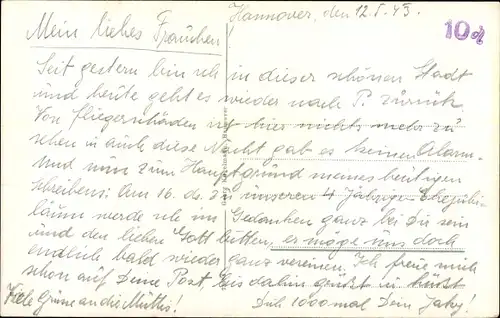 Hannover, den 12.I.43.
10 ₰
Mein liebes Frauchen!
Seit gestern bin ich in dieser schönen Stadt
und heute geht es wieder nach P. zurück.
Von Fliegerschäden ist hier nichts mehr zu
sehen in auch diese Nacht gab es keinen Alarm.
Und nun zum Hauptgrund meines heutigen
Schreibens: Am 16. d. zu unseren 4 Jährigen Ehejubi-
läum werde ich im Gedanken ganz bei Dir sein
und den lieben Gott bitten, er möge uns doch
endlich bald wieder ganz vereinen. Ich freue mich
schon auf Deine Post, bis dahin grüßt u. küßt
Viele Grüße an die Muttis! Dich 1000 mal Dein